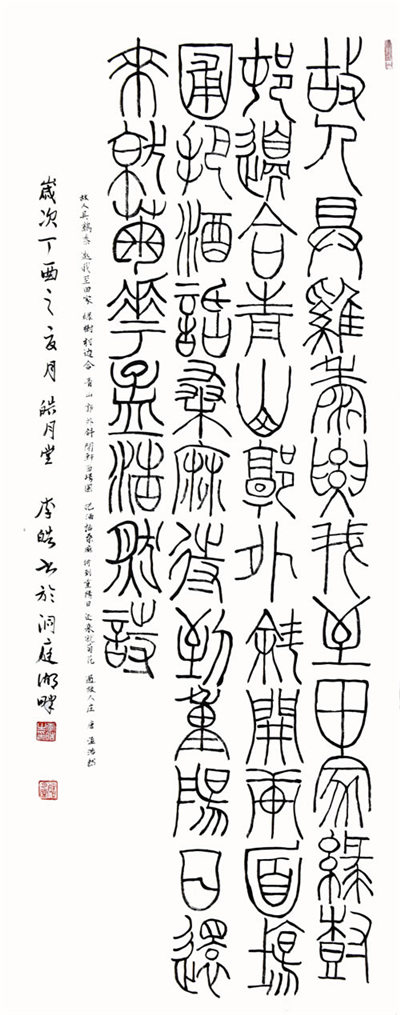 故人具雞黍要我至田家緑樹
邨邊合青山郭外斜開軒面場
圃把酒話桑麻待到重陽日還
來就菊花孟浩然詩
故人具鷄黍 邀我至田家 緑樹村边合 青山郭外斜 開軒面場圃 把酒話桑麻 待到重陽日 还來就菊花 過故人庄 唐 孟浩然
歲次丁酉之夏月 皓月堂 李皓书於洞庭湖畔